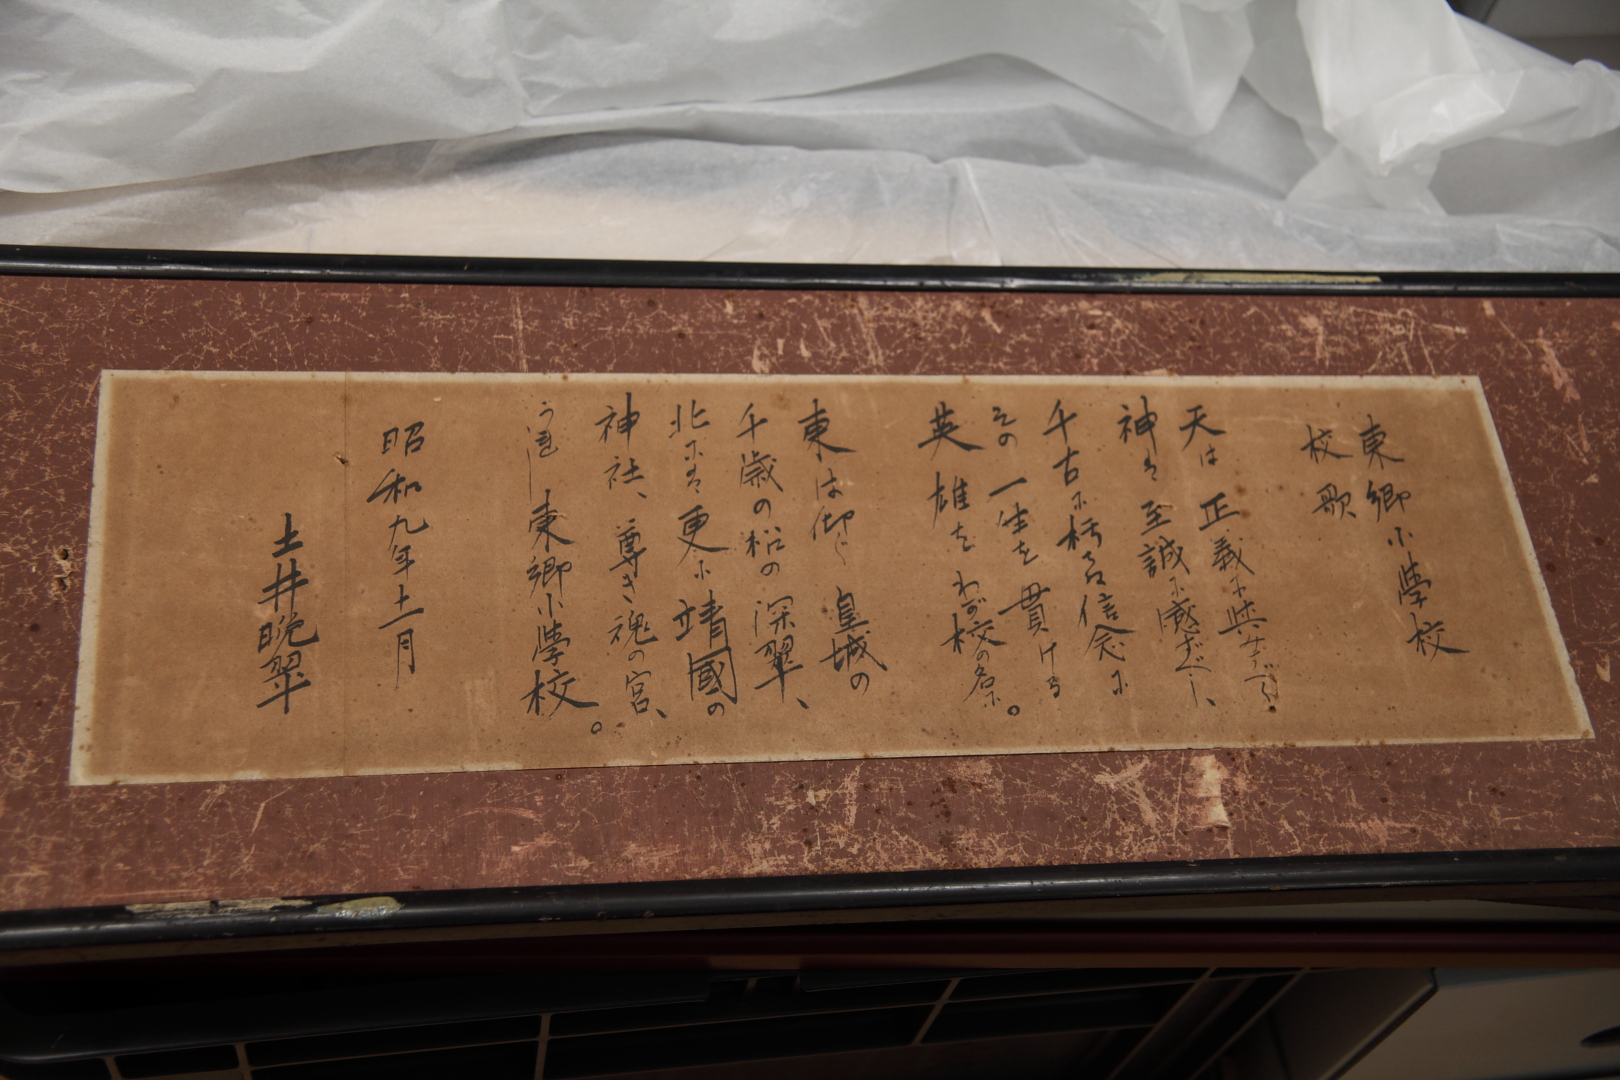 東郷小學校
校歌
天は正義に與すべく
神は至誠に感ずべし、
千古に朽 信念に
その一生を貫ける
英雄をわが校の名に。
東は仰ぐ皇城の
千歳の松の深翠、
北には更に靖國の
神社、尊き魂の宮、
うれし東郷小學校。
昭和九年十一月
土井晩翠